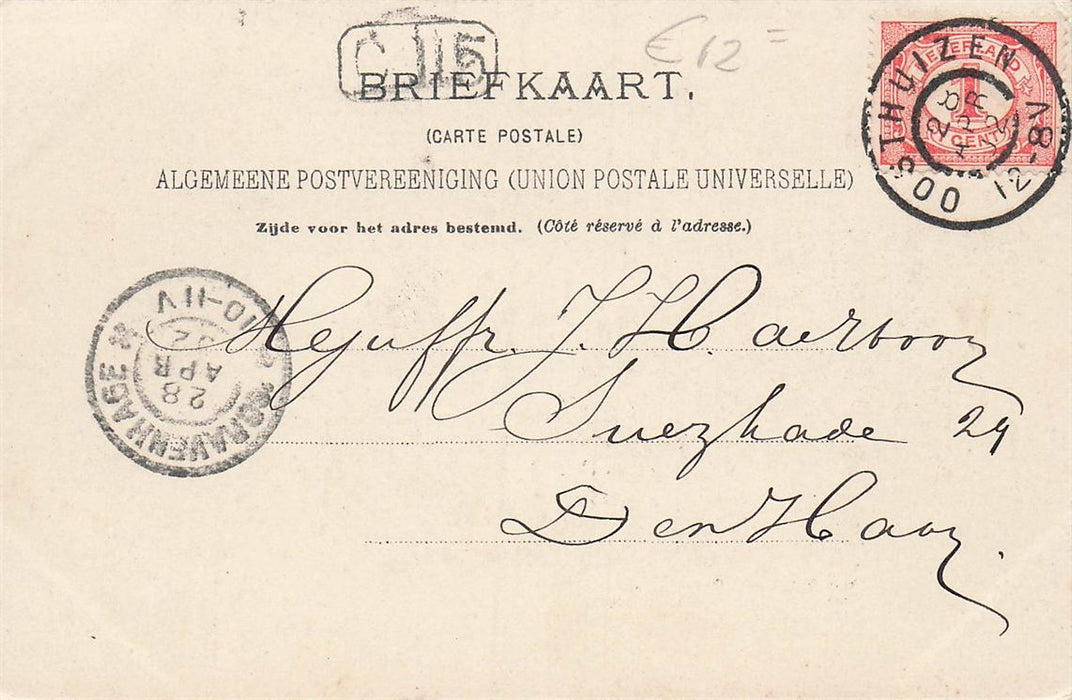 C 115
€ 12 =
BRIEFKAART.
(CARTE POSTALE)
ALGEMEENE POSTVEREENIGING (UNION POSTALE UNIVERSELLE)
Zijde voor het adres bestemd. (Côté réservé à l'adresse.)
NEDERLAND
1
CENT
OOSTHUIZEN
28 APR 02
12-8V
'S GRAVENHAGE
28
APR
02
10-11V
Mejuffr. J. H. Haerboog
Suezkade 29
Den Haag.